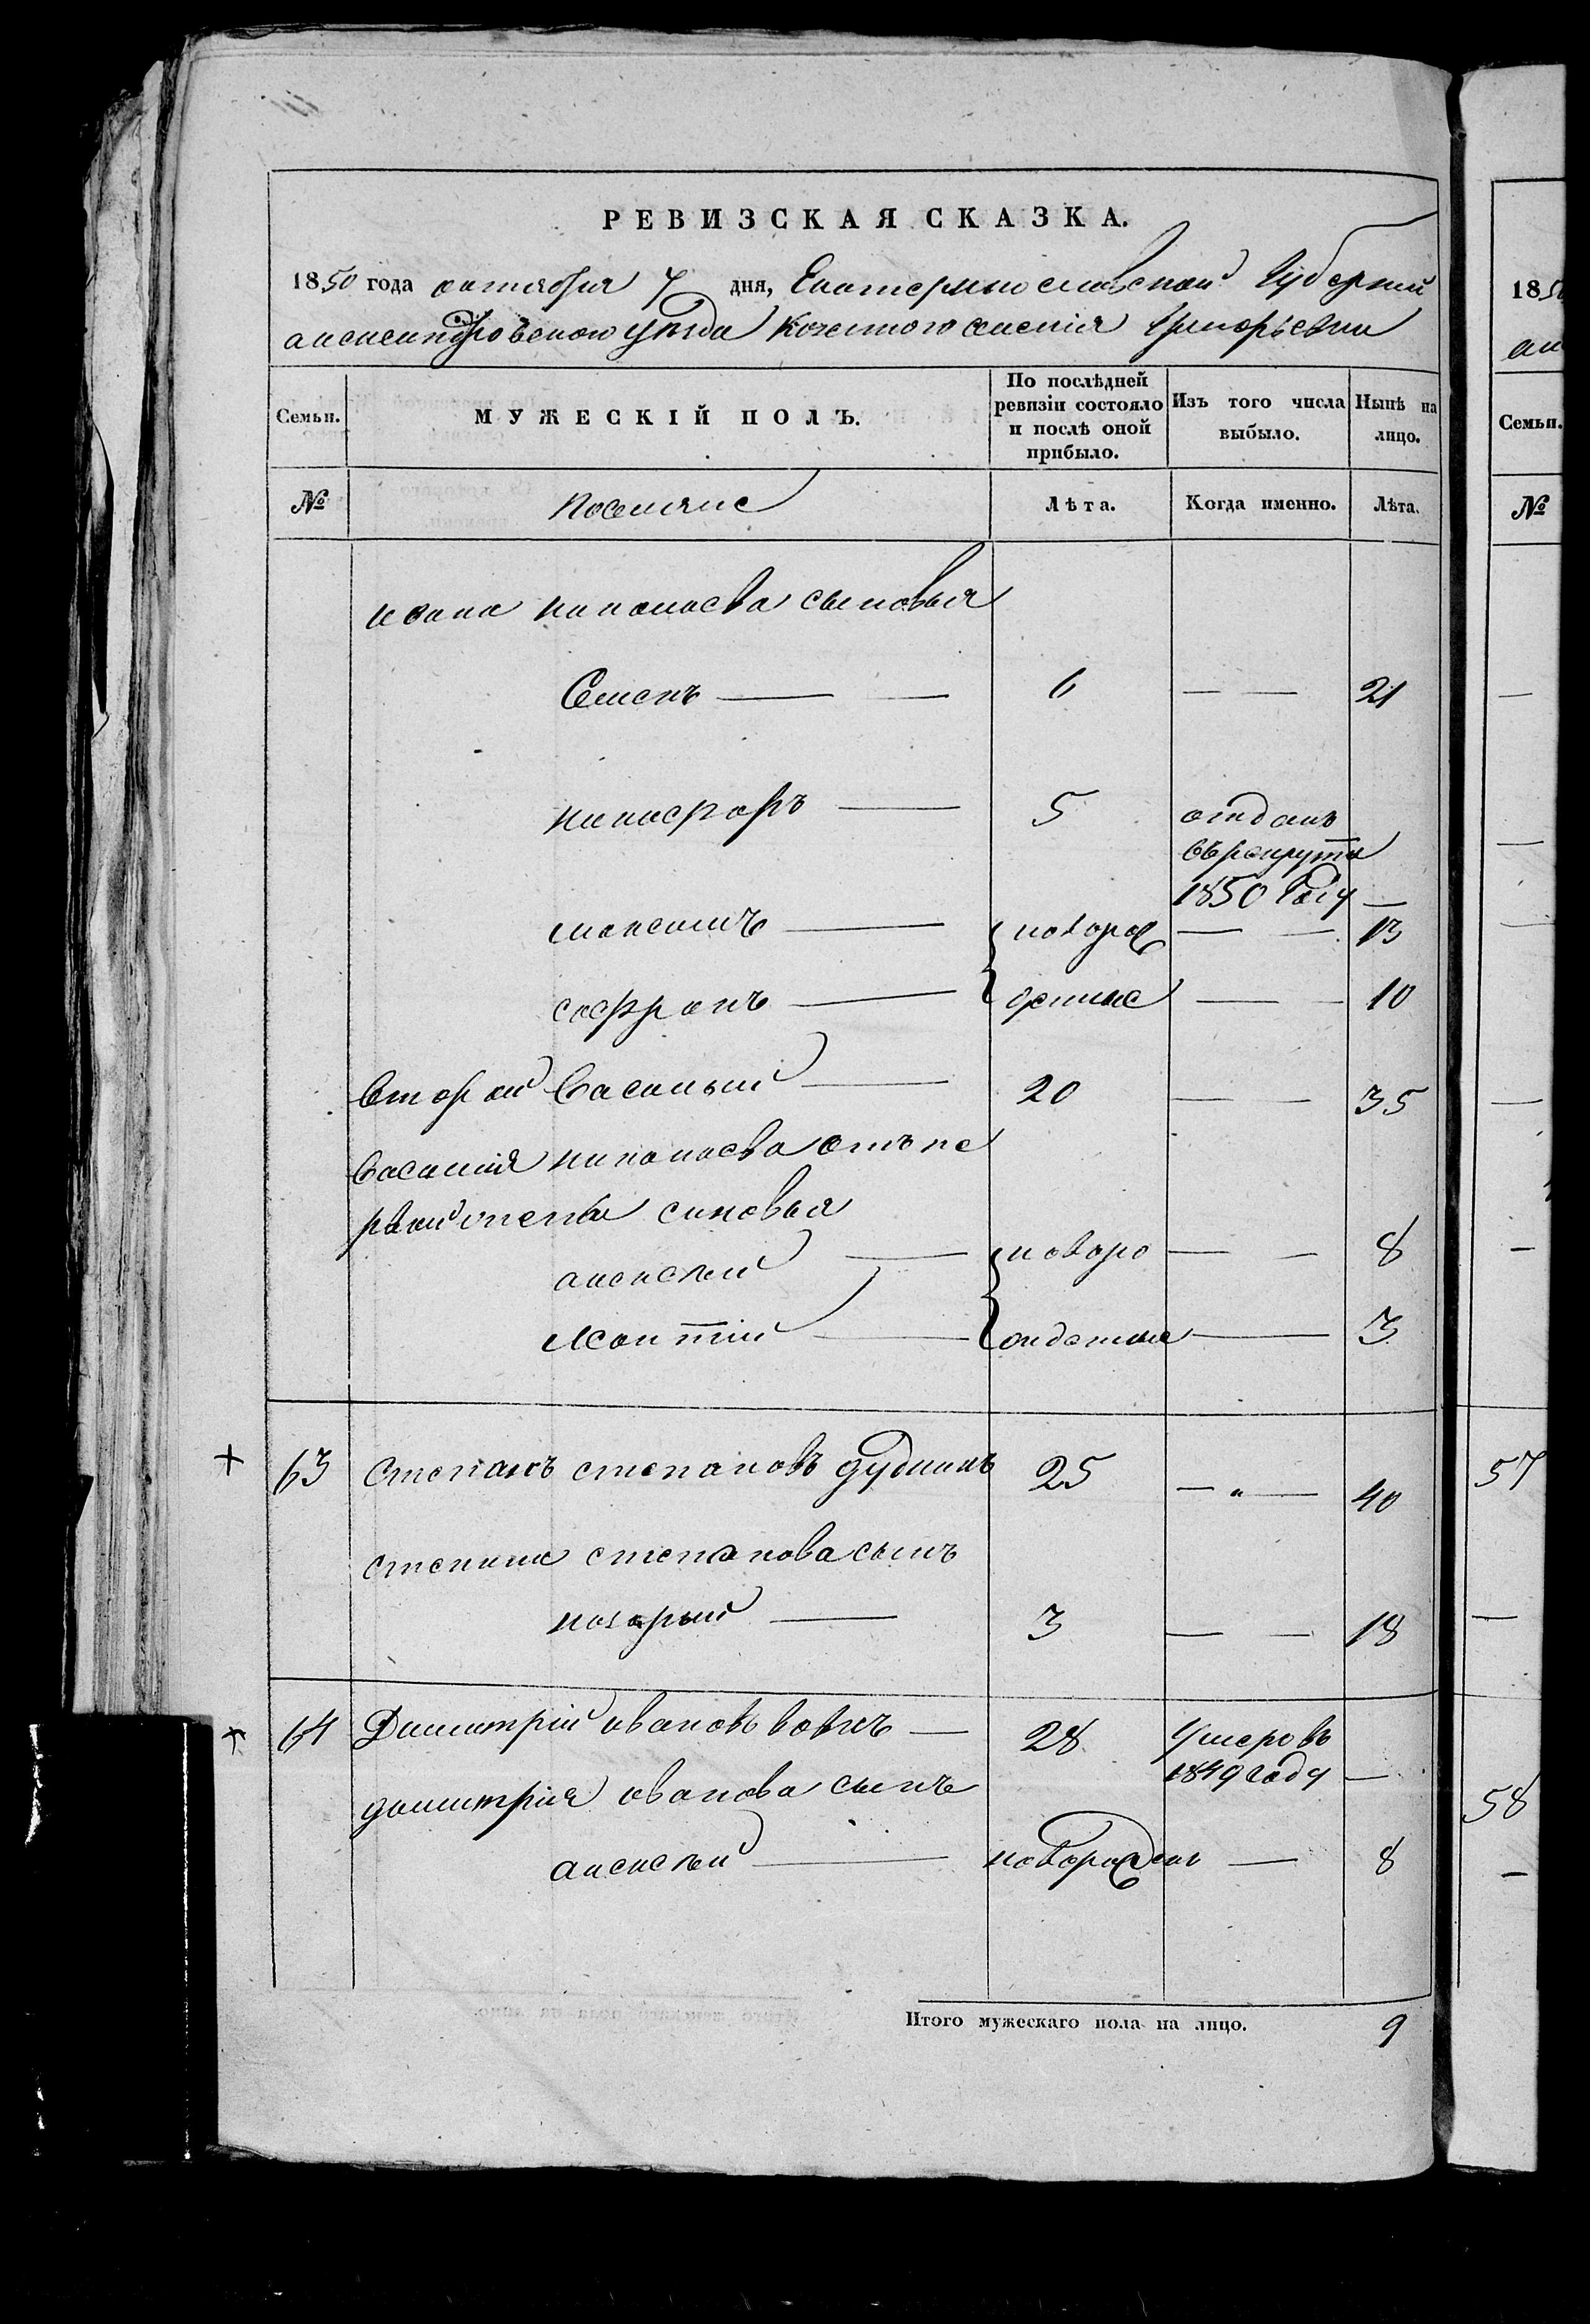 РЕВИЗСКАЯ СКАЗКА.
1850 года октября 7 дня, Екатеринославской Губернии
александровского уезда Козеного селенія Григорьевки
Семьи.
МУЖЕСКІЙ ПОЛЪ.
По послѣдней ревизіи состояло и послѣ оной прибыло.
Изъ того числа выбыло.
Нынѣ на лицо.
№
поселяне
Лѣта.
Когда именно.
Лѣта.
ивана николаева сыновья
Семенъ — — 6 — — 21
никифоръ — 5 отданъ
въ рекруты
1850 Году —
максимъ — новорож — — 13
софронъ — денные — — 10
второй Василий — 20 — — 35
Василия николаева отъ пе
рвой жены синовья
алексей — новоро — — 8
леонтій — жденные — 3
63 Степанъ степановъ дудникъ 25 — " — 40
степана степанова сынъ
назарый — 3 — — 18
64 Димитрій ивановъ вовкъ — 28 Умеръ въ
1849 году —
димитрия иванова сынъ
алексей — новорожден — 8
Итого мужескаго пола на лицо. 9
1850
ал
Семьи.
№
57
58